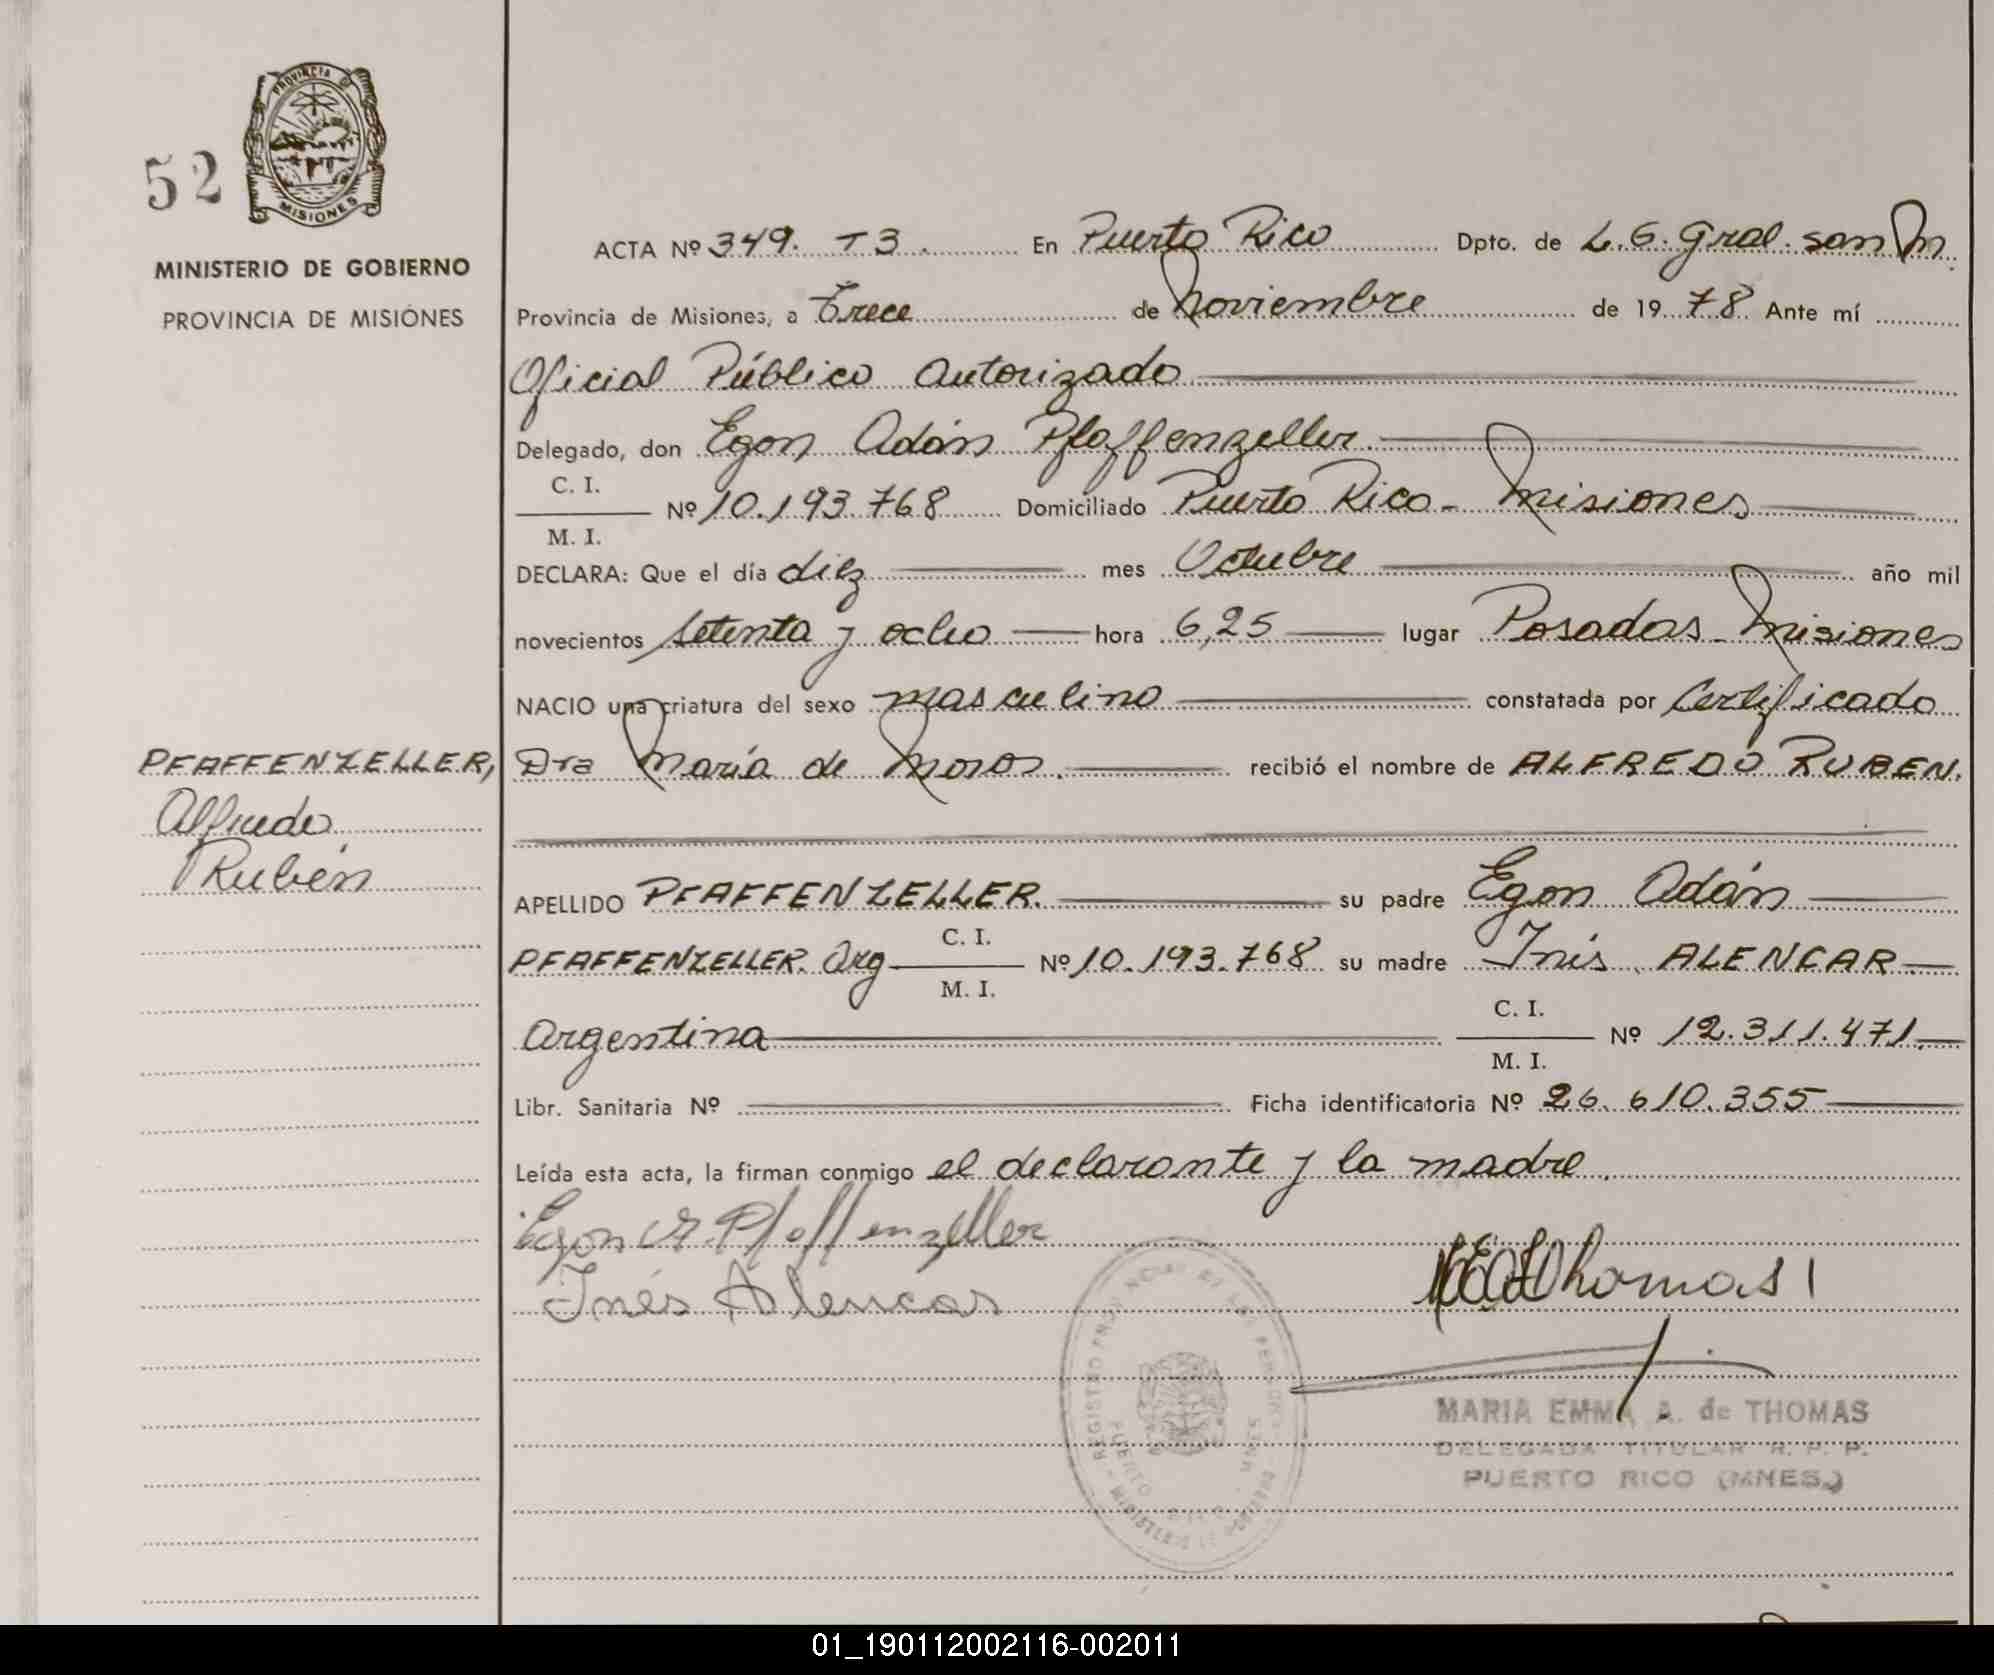 PROVINCIA DE
MISIONES
52
MINISTERIO DE GOBIERNO
PROVINCIA DE MISIONES
ACTA Nº 349. T 3. En Puerto Rico Dpto. de L. G. Gral. San M.
Provincia de Misiones, a Trece de Noviembre de 19 78 Ante mí
Oficial Público Autorizado
Delegado, don Egon Adán Pfaffenzeller.
C. I.
Nº 10.193.768 Domiciliado Puerto Rico - Misiones
M. I.
DECLARA: Que el día diez mes Octubre año mil
novecientos setenta y ocho hora 6,25 lugar Posadas - Misiones
NACIO una criatura del sexo masculino constatada por Certificado
PFAFFENZELLER,
Alfredo
Rubén
Dra María de recibió el nombre de ALFREDO RUBEN.
APELLIDO PFAFFENZELLER. su padre Egon Adán
PFAFFENZELLER. Arg C. I. Nº 10.193.768 su madre Inés ALENCAR
M. I.
C. I.
Argentina Nº 12.311.471.
M. I.
Libr. Sanitaria Nº Ficha identificatoria Nº 26.610.355
Leída esta acta, la firman conmigo el declarante y la madre.
Egon A. Pfaffenzeller
Inés Alencar
Thomas
MARIA EMMA A. de THOMAS
DELEGADA TITULAR R. P. P.
PUERTO RICO (MNES.)
01_190112002116-002011